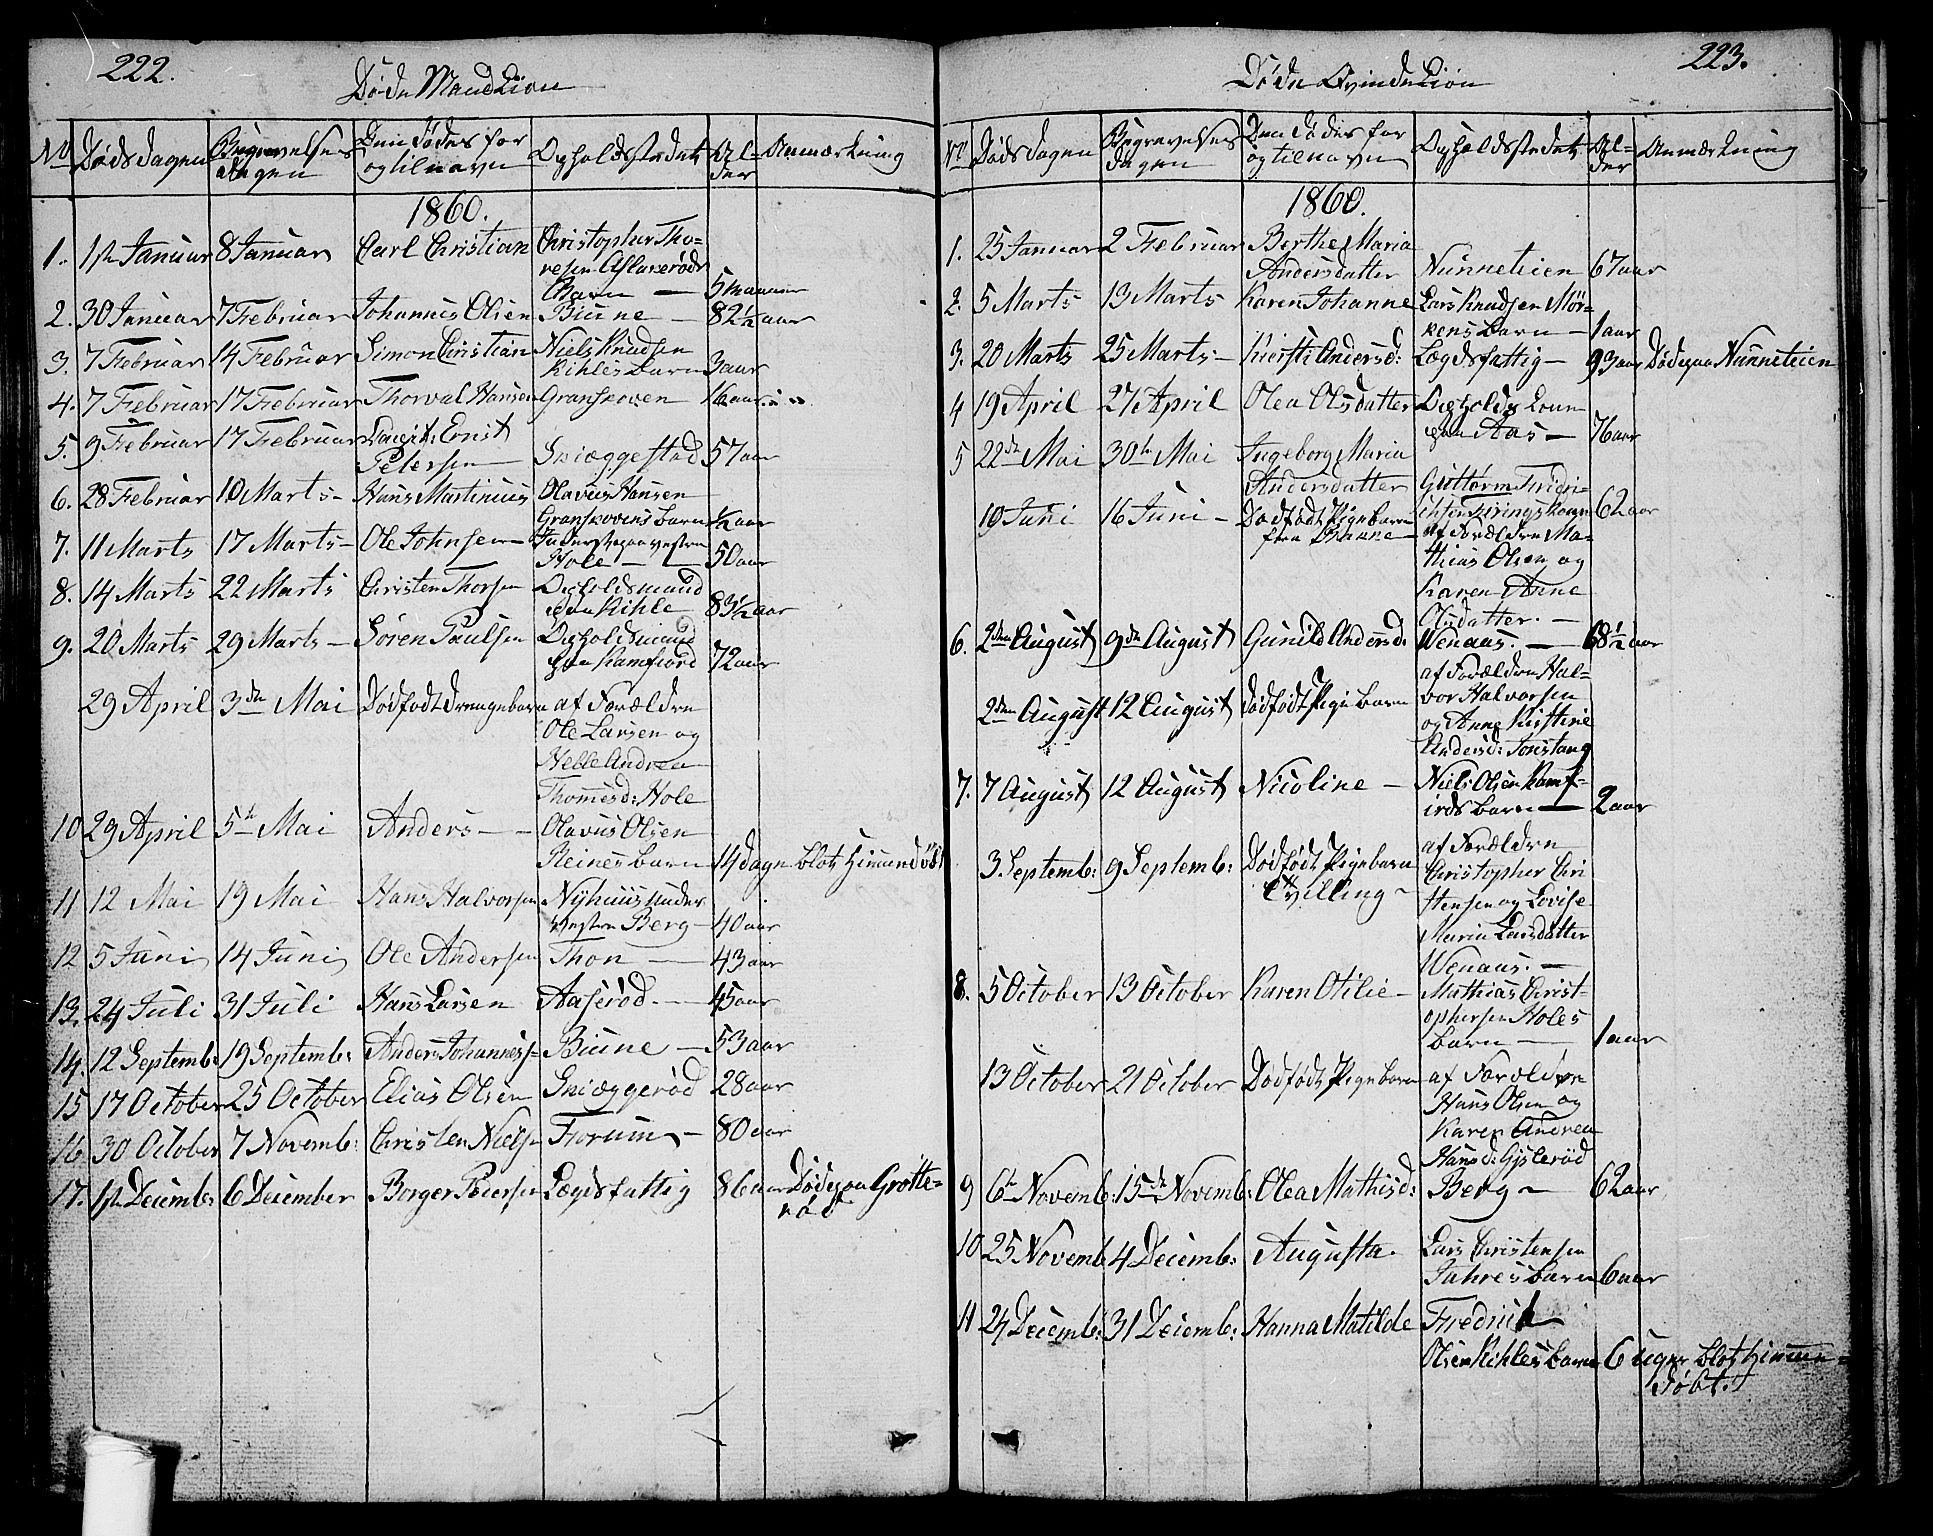 222.
Døde Mandkiøn
No Døds dagen Begravelses dagen Den Dødes for og tilnavn Opholdsstedet Alder Anmærkning
1860.
1. 1ste Januar 8 Januar Carl Christian Christopher Tho-
resen Aslakerøds
Barn — 5 maaneder
2. 30 Januar 7 Februar Johannes Olsen Biune — 82½ aar
3. 7 Februar 14 Februar Simon Christian Niels Knudsen
Kihles Barn 3 aar
4. 7 Februar 17 Februar Thorval Hansen Granskoven 16 aar
5. 9 Februar 17 Februar Ernst
Petersen — Sniæggestad 57 aar
6. 28 Februar 10 Marts — Hans Martinius Olavus Hansen
Granskovens barn ½ aar
7. 11 Marts 17 Marts — Ole Johnsen Inderst paa vestre
Hole — 50 aar
8. 14 Marts 22 Marts Christen Thorsen Opholdsmand
paa Kihle 83½ aar
9. 20 Marts 29 Marts — Søren Paulsen Opholdsmand
paa Kamfiord 72 aar
29 April 3de Mai Dødfødt Drengebarn af Forældre
Ole Larsen og
Helle Andrea
Thomesd: Hole
10 29 April 5te Mai Anders — Olavus Olsen
Reines barn 14 dage blot hiemmedøbt
11 12 Mai 19 Mai Hans Halvorsen Nyhuus under
vestre Berg — 40 aar
12 5 Juni 14 Juni Ole Andersen Thon — 43 aar
13. 24 Juli 31 Juli Hans Larsen Aaserød — 45 aar
14. 12 Septemb: 19 Septemb: Anders Johannes- Biune — 53 aar
15 17 October 25 October Elias Olsen Sniæggerød 28 aar
16 30 October 7 Novemb: Christen Niels Forum — 80 aar
17. 1ste Decemb: 6 December Borger Peersen Lægdsfattig 86 aar Døde paa Grotte-
rød
223.
Døde Qvindekiøn
No Dødsdagen Begravelses dagen Den Dødes for og tilnavn Opholdsstedet Alder Anmærkning
1860.
1. 25 Januar 2 Februar Berthe Maria
Andersdatter Nunneteien 67 aar
2. 5 Marts 13 Marts Karen Johanne Lars Knudsen Mør-
kens barn — 1 aar
3. 20 Marts 25 Marts — Kiersti Andersd: Lægdsfattig — 93 aar Døde paa Nunneteien
4 19 April 27 April Olea Olsdatter Opholds Kone
paa Aas — 76 aar
5 22de Mai 30te Mai Ingeborg Maria
Andersdatter Guttorm Fredri-
62 aar
10 Juni 16 Juni — Dødfødt Pigebarn
fra Biune — af Forældre Ma-
thias Olsen og
Karen Anne
Olsdatter. —
6. 2den August 9de August Gunild Andersd: Wenaas. — 68½ aar
2den August 12 August Dødfødt Pigebarn af Forældre Hal-
vor Halvorsen
og Anne Kirstine
Andersd: Tonstang
7. 7 August 12 August Nicoline — Niels Olsen Kamf-
iords barn — 2 aar
3 Septemb: 9 Septemb: Dødfødt Pigebarn
Tvilling — af Forældre
Christopher Chri
stensen og Lovise
Maria Larsdatter
Wenaas. —
8. 5 October 13 October Karen Otilie — Mathias Christ-
ophersen Holes
barn — 1 aar
13 October 21 October Dødfødt Pigebarn af Forældre
Hans Olsen og
Karen Andrea
Hansd: Gjslerød
9 6te Novemb: 15de Novemb: Olea Mathisd: Berg — 62 aar
10 25 Novemb 4 Decemb: Augusta. Lars Christensen
Jahres barn 6 aar
11 24 Decemb: 31 Decemb: Hanna Matilde Fredrik
Olsen Kihles barn 6 uger blot hiemme-
døbt.